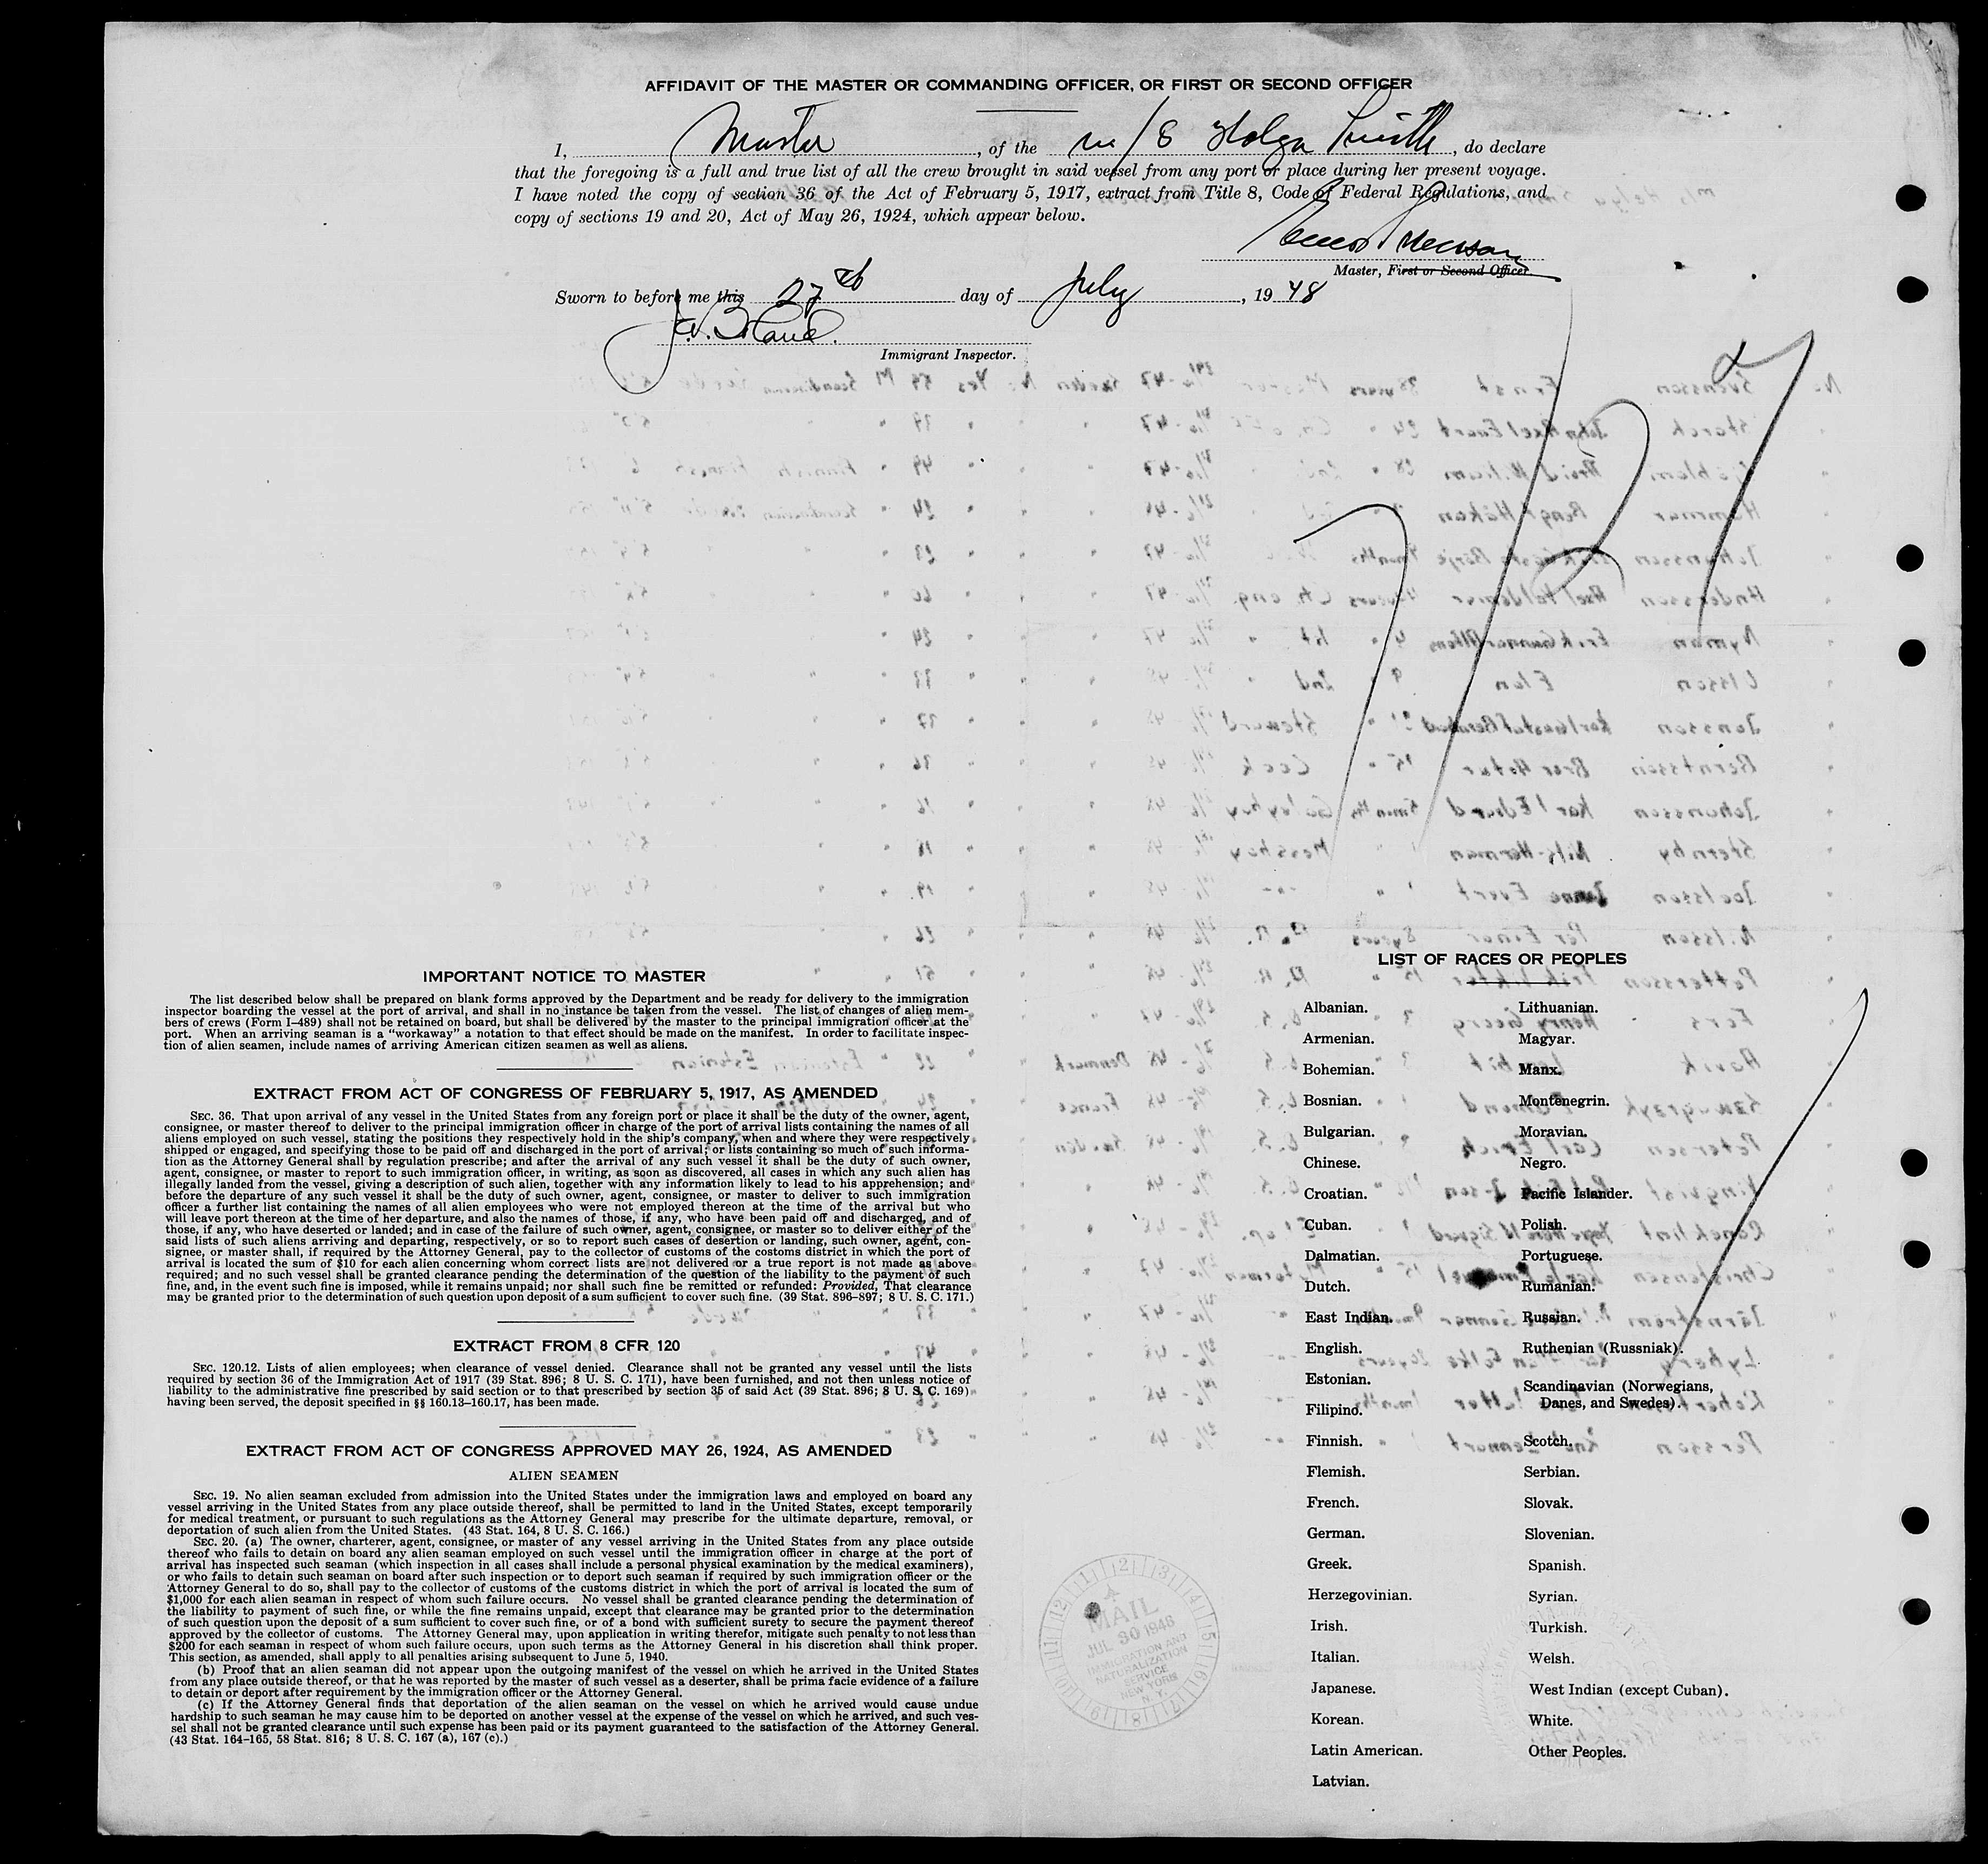 AFFIDAVIT OF THE MASTER OR COMMANDING OFFICER, OR FIRST OR SECOND OFFICER
I, Master, of the m/S Helga Smith, do declare
that the foregoing is a full and true list of all the crew brought in said vessel from any port or place during her present voyage.
I have noted the copy of section 36 of the Act of February 5, 1917, extract from Title 8, Code of Federal Regulations, and
copy of sections 19 and 20, Act of May 26, 1924, which appear below.
Master, First or Second Officer
Sworn to before me this 27th day of July, 1948
Immigrant Inspector.
IMPORTANT NOTICE TO MASTER
The list described below shall be prepared on blank forms approved by the Department and be ready for delivery to the immigration
inspector boarding the vessel at the port of arrival, and shall in no instance be taken from the vessel. The list of changes of alien mem-
bers of crews (Form I-489) shall not be retained on board, but shall be delivered by the master to the principal immigration officer at the
port. When an arriving seaman is a "workaway" a notation to that effect should be made on the manifest. In order to facilitate inspec-
tion of alien seamen, include names of arriving American citizen seamen as well as aliens.
EXTRACT FROM ACT OF CONGRESS OF FEBRUARY 5, 1917, AS AMENDED
SEC. 36. That upon arrival of any vessel in the United States from any foreign port or place it shall be the duty of the owner, agent,
consignee, or master thereof to deliver to the principal immigration officer in charge of the port of arrival lists containing the names of all
aliens employed on such vessel, stating the positions they respectively hold in the ship's company, when and where they were respectively
shipped or engaged, and specifying those to be paid off and discharged in the port of arrival; or lists containing so much of such informa-
tion as the Attorney General shall by regulation prescribe; and after the arrival of any such vessel it shall be the duty of such owner,
agent, consignee, or master to report to such immigration officer, in writing, as soon as discovered, all cases in which any such alien has
illegally landed from the vessel, giving a description of such alien, together with any information likely to lead to his apprehension; and
before the departure of any such vessel it shall be the duty of such owner, agent, consignee, or master to deliver to such immigration
officer a further list containing the names of all alien employees who were not employed thereon at the time of the arrival but who
will leave port thereon at the time of her departure, and also the names of those, if any, who have been paid off and discharged, and of
those, if any, who have deserted or landed; and in case of the failure of such owner, agent, consignee, or master so to deliver either of the
said lists of such aliens arriving and departing, respectively, or so to report such cases of desertion or landing, such owner, agent, con-
signee, or master shall, if required by the Attorney General, pay to the collector of customs of the costoms district in which the port of
arrival is located the sum of $10 for each alien concerning whom correct lists are not delivered or a true report is not made as above
required; and no such vessel shall be granted clearance pending the determination of the question of the liability to the payment of such
fine, and, in the event such fine is imposed, while it remains unpaid; nor shall such fine be remitted or refunded: Provided, That clearance
may be granted prior to the determination of such question upon deposit of a sum sufficient to cover such fine. (39 Stat. 896-897; 8 U. S. C. 171.)
EXTRACT FROM 8 CFR 120
SEC. 120.12. Lists of alien employees; when clearance of vessel denied. Clearance shall not be granted any vessel until the lists
required by section 36 of the Immigration Act of 1917 (39 Stat. 896; 8 U. S. C. 171), have been furnished, and not then unless notice of
liability to the administrative fine prescribed by said section or to that prescribed by section 35 of said Act (39 Stat. 896; 8 U. S. C. 169)
having been served, the deposit specified in §§ 160.13-160.17, has been made.
EXTRACT FROM ACT OF CONGRESS APPROVED MAY 26, 1924, AS AMENDED
ALIEN SEAMEN
SEC. 19. No alien seaman excluded from admission into the United States under the immigration laws and employed on board any
vessel arriving in the United States from any place outside thereof, shall be permitted to land in the United States, except temporarily
for medical treatment, or pursuant to such regulations as the Attorney General may prescribe for the ultimate departure, removal, or
deportation of such alien from the United States. (43 Stat. 164, 8 U. S. C. 166.)
SEC. 20. (a) The owner, charterer, agent, consignee, or master of any vessel arriving in the United States from any place outside
thereof who fails to detain on board any alien seaman employed on such vessel until the immigration officer in charge at the port of
arrival has inspected such seaman (which inspection in all cases shall include a personal physical examination by the medical examiners),
or who fails to detain such seaman on board after such inspection or to deport such seaman if required by such immigration officer or the
Attorney General to do so, shall pay to the collector of customs of the customs district in which the port of arrival is located the sum of
$1,000 for each alien seaman in respect of whom such failure occurs. No vessel shall be granted clearance pending the determination of
the liability to payment of such fine, or while the fine remains unpaid, except that clearance may be granted prior to the determination
of such question upon the deposit of a sum sufficient to cover such fine, or of a bond with sufficient surety to secure the payment thereof
approved by the collector of customs. The Attorney General may, upon application in writing therefor, mitigate such penalty to not less than
$200 for each seaman in respect of whom such failure occurs, upon such terms as the Attorney General in his discretion shall think proper.
This section, as amended, shall apply to all penalties arising subsequent to June 5, 1940.
(b) Proof that an alien seaman did not appear upon the outgoing manifest of the vessel on which he arrived in the United States
from any place outside thereof, or that he was reported by the master of such vessel as a deserter, shall be prima facie evidence of a failure
to detain or deport after requirement by the immigration officer or the Attorney General.
(c) If the Attorney General finds that deportation of the alien seaman on the vessel on which he arrived would cause undue
hardship to such seaman he may cause him to be deported on another vessel at the expense of the vessel on which he arrived, and such ves-
sel shall not be granted clearance until such expense has been paid or its payment guaranteed to the satisfaction of the Attorney General.
(43 Stat. 164-165, 58 Stat. 816; 8 U. S. C. 167 (a), 167 (c).)
MAIL
JUL 30 1948
IMMIGRATION AND
NATURALIZATION
SERVICE
NEW YORK
N. Y.
LIST OF RACES OR PEOPLES
Albanian.
Armenian.
Bohemian.
Bosnian.
Bulgarian.
Chinese.
Croatian.
Cuban.
Dalmatian.
Dutch.
East Indian.
English.
Estonian.
Filipino.
Finnish.
Flemish.
French.
German.
Greek.
Herzegovinian.
Irish.
Italian.
Japanese.
Korean.
Latin American.
Latvian.
Lithuanian.
Magyar.
Manx.
Montenegrin.
Moravian.
Negro.
Pacific Islander.
Polish.
Portuguese.
Rumanian.
Russian.
Ruthenian (Russniak).
Scandinavian (Norwegians,
Danes, and Swedes).
Scotch.
Serbian.
Slovak.
Slovenian.
Spanish.
Syrian.
Turkish.
Welsh.
West Indian (except Cuban).
White.
Other Peoples.